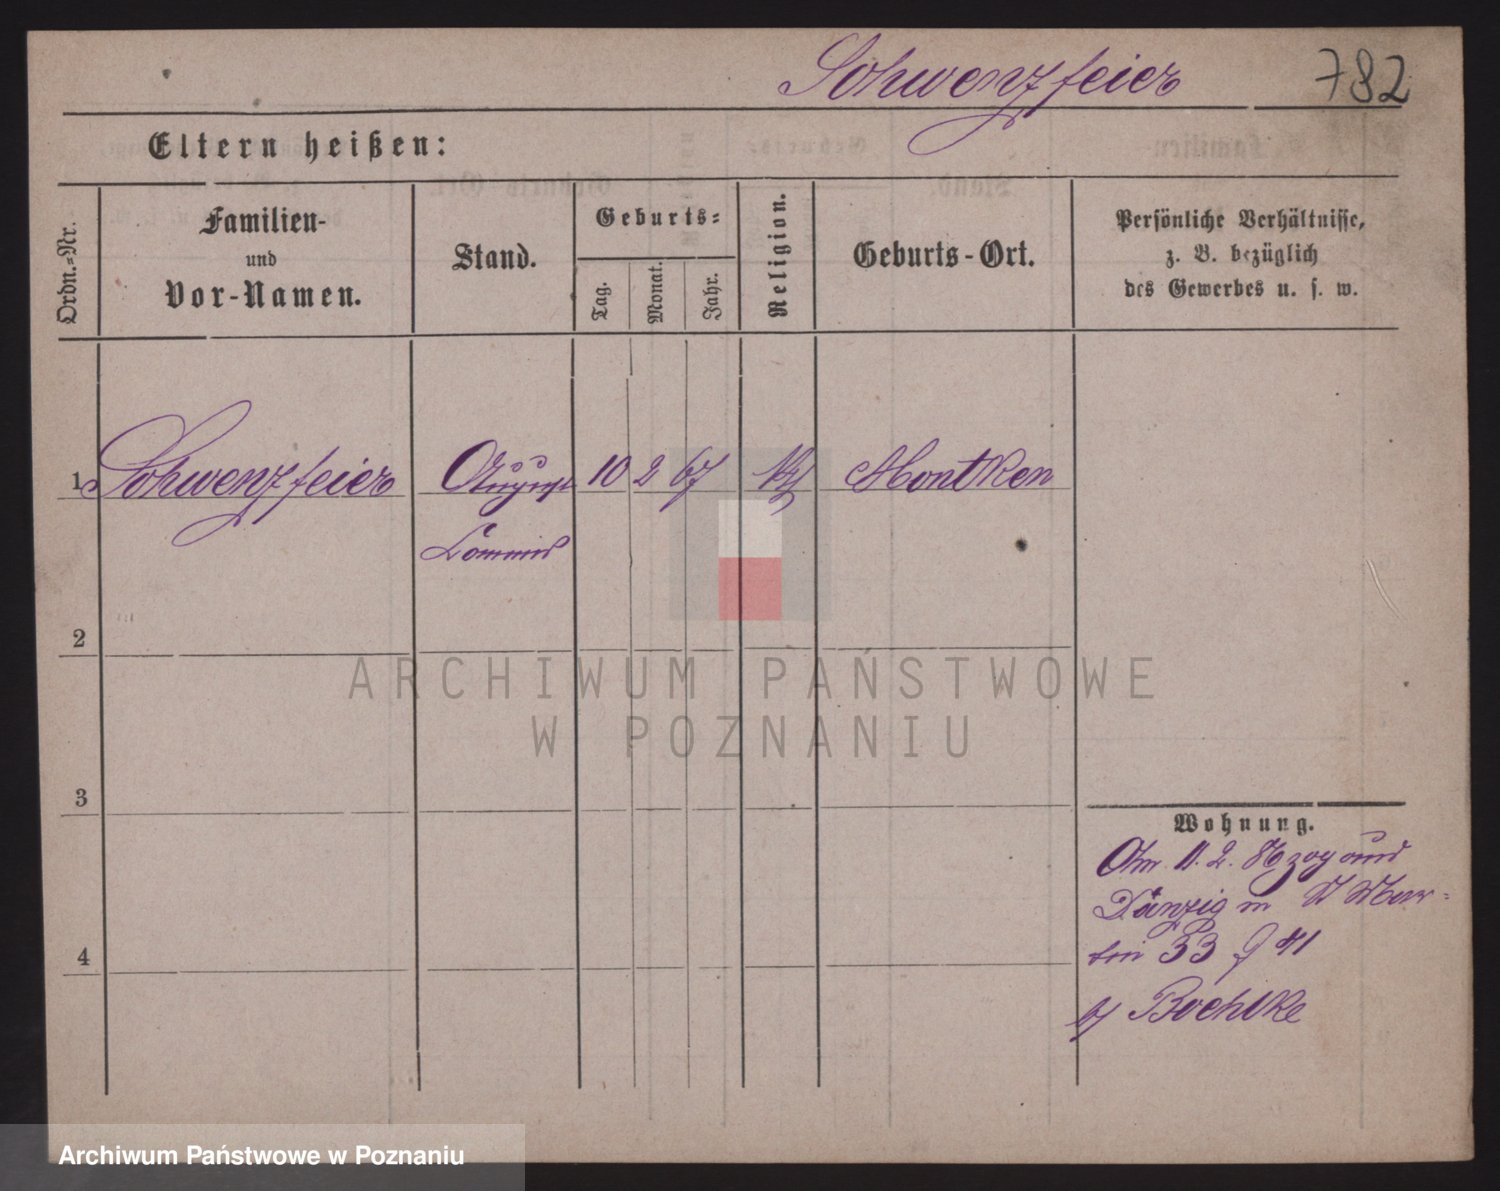 Schwenzfeier 782
Eltern heißen:
Ordn.-Nr.
Familien-
und
Vor-Namen.
Stand.
Geburts-
Tag.
Monat.
Jahr.
Religion.
Geburts-Ort.
Persönliche Verhältnisse,
z. B. bezüglich
des Gewerbes u. s. w.
1 Schwenzfeier August 10 2 67 Montken
Commis
2
3
4
Wohnung.
11. 2.
Danzig n
tin 33
Boehlke
ARCHIWUM PAŃSTWOWE
W POZNANIU
Archiwum Państwowe w Poznaniu